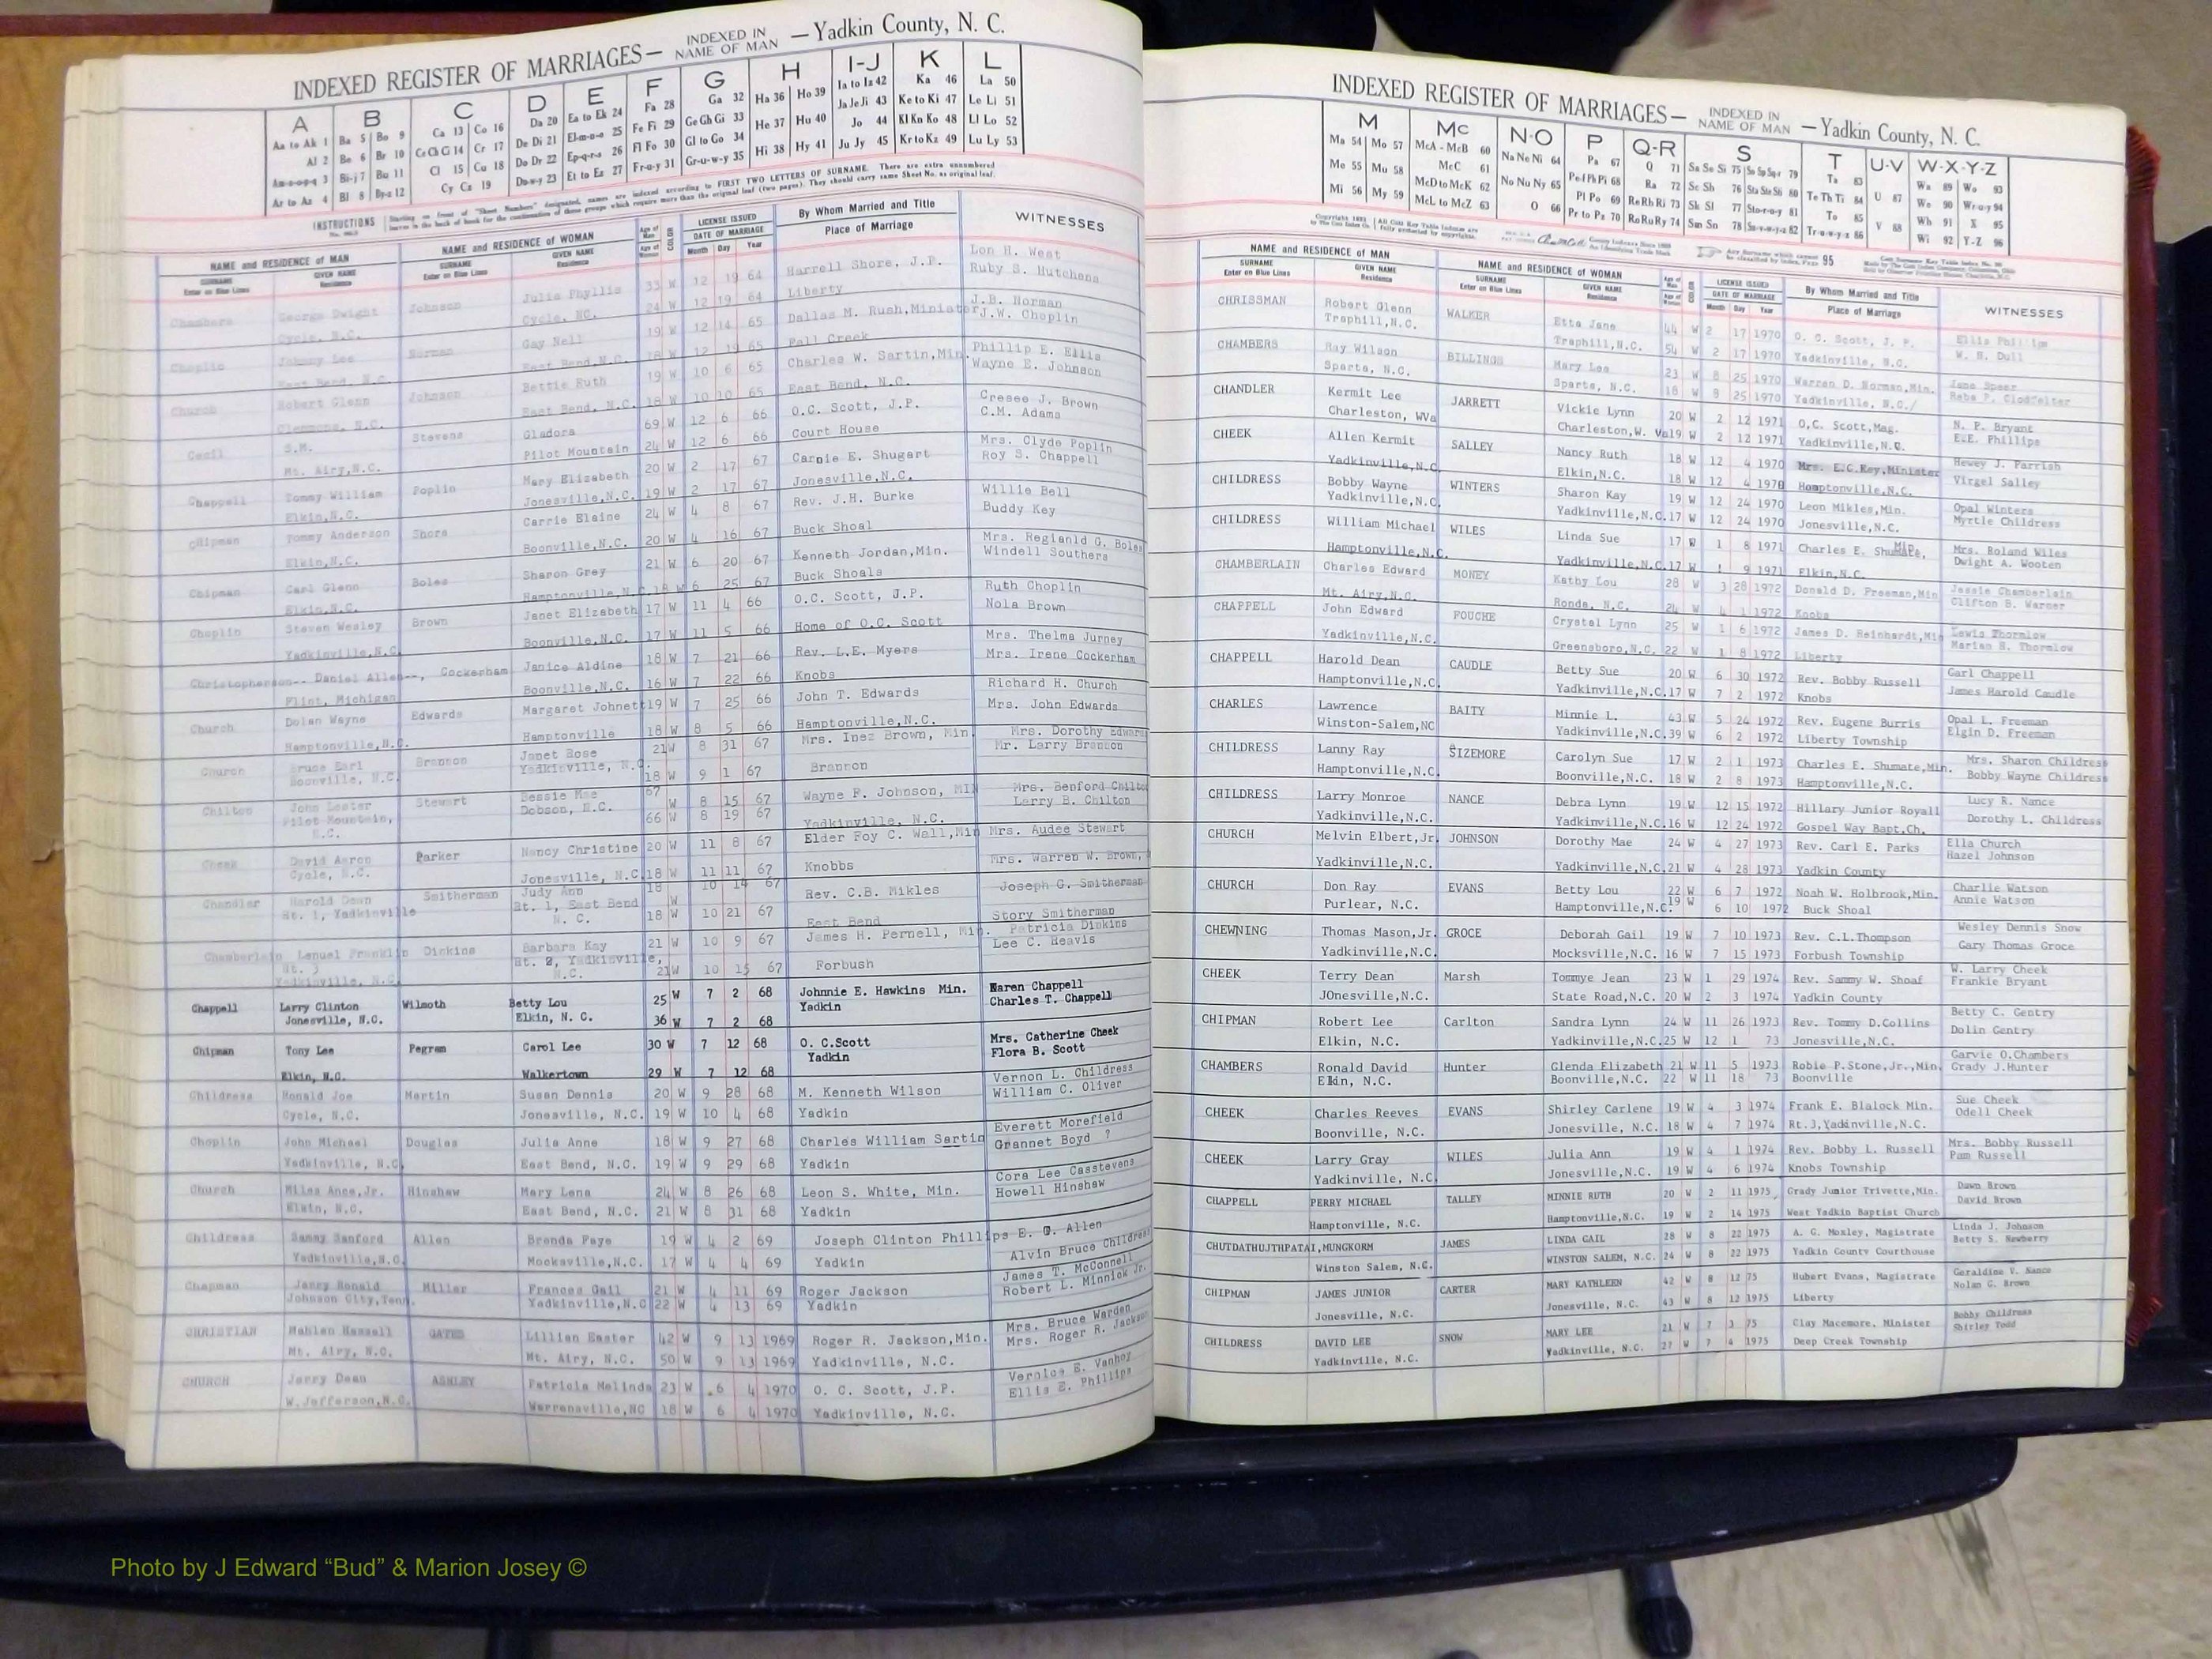 INDEXED REGISTER OF MARRIAGES— INDEXED IN NAME OF MAN —Yadkin County, N. C.
A B C D E F G H I-J K L
Aa to Ak 1 Ba 5 Bo 9 Ca 13 Co 16 Da 20 Ea to Ek 24 Fa 28 Ga 32 Ha 36 Ho 39 Ia to Iz 42 Ka 46 La 50
Al 2 Be 6 Br 10 Ce Ch Ci 14 Cr 17 De Di 21 El-m-n-o 25 Fe Fi 29 Ge Gh Gi 33 He 37 Hu 40 Ja Je Ji 43 Ke to Ki 47 Le Li 51
Bi-j 7 Bu 11 Cl 15 Cu 18 Do Dr 22 Ep-q-r-s 26 Fl Fo 30 Gl to Go 34 Hi 38 Hy 41 Jo 44 Kl Kn Ko 48 Ll Lo 52
Ar to Az 4 Bl 8 By-z 12 Cy Cz 19 Du-w-y 23 Et to Ez 27 Fr-u-y 31 Gr-u-w-y 35 Ju Jy 45 Kr to Kz 49 Lu Ly 53
NAME and RESIDENCE OF MAN NAME and RESIDENCE OF WOMAN LICENSE ISSUED DATE OF MARRIAGE Month Day Year By Whom Married and Title Place of Marriage WITNESSES
Chambers George Dwight Johnson Julia Phyllis 33 W 12 19 64 Harrell Shore, J.P. Lon H. West
Cycle, N.C. Cycle, NC. 24 W 12 19 64 Liberty Ruby S. Hutchens
Choplin Johnny Lee Norman Gay Nell 19 W 12 14 65 Dallas M. Rush,Minister J.B. Norman
East Bend, N.C. East Bend,N.C. 18 W 12 19 65 Fall Creek J.W. Choplin
Church Robert Glenn Johnson Bettie Ruth 19 W 10 6 65 Charles W. Sartin,Min. Phillip E. Ellis
Clemmons, N.C. East Bend, N.C. 18 W 10 10 65 East Bend, N.C. Wayne E. Johnson
Cecil S.M. Stevens Gladora 69 W 12 6 66 O.C. Scott, J.P. Cresee J. Brown
Mt. Airy,N.C. Pilot Mountain 24 W 12 6 66 Court House C.M. Adams
Chappell Tommy William Poplin Mary Elizabeth 20 W 2 17 67 Carnie E. Shugart Mrs. Clyde Poplin
Elkin,N.C. Jonesville,N.C. 19 W 2 17 67 Jonesville,N.C. Roy S. Chappell
Chipman Tommy Anderson Shore Carrie Elaine 24 W 4 8 67 Rev. J.H. Burke Willie Bell
Elkin,N.C. Boonville,N.C. 20 W 4 16 67 Buck Shoal Buddy Key
Chipman Carl Glenn Boles Sharon Grey 21 W 6 20 67 Kenneth Jordan,Min. Mrs. Regianld G. Boles
Elkin,N.C. Hamptonville,N.C. 18 W 6 25 67 Buck Shoals Windell Southers
Choplin Steven Wesley Brown Janet Elizabeth 17 W 11 4 66 O.C. Scott, J.P. Ruth Choplin
Yadkinville,N.C. Boonville,N.C. 17 W 11 5 66 Home of O.C. Scott Nola Brown
Christopherson-- Daniel Allen--, Cockerham Janice Aldine 18 W 7 21 66 Rev. L.E. Myers Mrs. Thelma Jurney
Flint, Michigan Boonville,N.C. 16 W 7 22 66 Knobs Mrs. Irene Cockerham
Church Dolan Wayne Edwards Margaret Johnett 19 W 7 25 66 John T. Edwards Richard H. Church
Hamptonville,N.C. Hamptonville 18 W 8 5 66 Hamptonville,N.C. Mrs. John Edwards
Church Bruce Earl Brannon Janet Rose 21W 8 31 67 Mrs. Inez Brown, Min. Mrs. Dorothy Edwards
Boonville, N.C. Yadkinville, N.C. 18 W 9 1 67 Brannon Mr. Larry Brannon
Chilton John Lester Stewart Bessie Mae 67 W 8 15 67 Wayne F. Johnson, MIN Mrs. Benford Chilton
Pilot Mountain, N.C. Dobson, N.C. 66 W 8 19 67 Yadkinville, N.C. Larry B. Chilton
Cheek David Aaron Parker Nancy Christine 20 W 11 8 67 Elder Foy C. Wall,Min Mrs. Audee Stewart
Cycle, N.C. Jonesville, N.C. 18 W 11 11 67 Knobbs Mrs. Warren W. Brown,
Chandler Harold Dean Smitherman Judy Ann 18 W 10 14 67 Rev. C.B. Mikles Joseph G. Smitherman
Rt. 1, Yadkinville Rt. 1, East Bend N. C. 18 W 10 21 67 East Bend Story Smitherman
Chamberlain Lemuel Franklin Dickins Barbara Kay 21 W 10 9 67 James H. Pernell, Min. Patricia Dickins
Rt. 3 Yadkinville, N.C. Rt. 2, Yadkinville, N.C. 21W 10 15 67 Forbush Lee C. Reavis
Chappell Larry Clinton Wilmoth Betty Lou 25 W 7 2 68 Johnnie E. Hawkins Min. Karen Chappell
Jonesville, N.C. Elkin, N. C. 36 W 7 2 68 Yadkin Charles T. Chappell
Chipman Tony Lee Pegram Carol Lee 30 W 7 12 68 O. C.Scott Mrs. Catherine Cheek
Elkin, N.C. Walkertown 29 W 7 12 68 Yadkin Flora B. Scott
Childress Ronald Joe Martin Susan Dennis 20 W 9 28 68 M. Kenneth Wilson Vernon L. Childress
Cycle, N.C. Jonesville, N.C. 19 W 10 4 68 Yadkin William C. Oliver
Choplin John Michael Douglas Julia Anne 18 W 9 27 68 Charles William Sartin Everett Morefield
Yadkinville, N.C. East Bend, N.C. 19 W 9 29 68 Yadkin Grannet Boyd ?
Church Miles Anes,Jr. Hinshaw Mary Lena 24 W 8 26 68 Leon S. White, Min. Cora Lee Casstevens
Elkin, N.C. East Bend, N.C. 21 W 8 31 68 Yadkin Howell Hinshaw
Childress Sammy Sanford Allen Brenda Faye 19 W 4 2 69 Joseph Clinton Phillips E. G. Allen
Yadkinville,N.C. Mocksville,N.C. 17 W 4 4 69 Yadkin Alvin Bruce Childress
Chapman Janry Ronald Miller Frances Gail 21 W 4 11 69 Roger Jackson James T. McConnell
Johnson City,Tenn. Yadkinville,N.C 22 W 4 13 69 Yadkin Robert L. Minnick Jr.
CHRISTIAN Mahlen Hassell GATES Lillian Easter 42 W 9 13 1969 Roger R. Jackson,Min. Mrs. Bruce Warden
Mt. Airy, N.C. Mt. Airy, N.C. 50 W 9 13 1969 Yadkinville, N.C. Mrs. Roger R. Jackson
CHURCH Jerry Dean ASHLEY Patricia Melinda 23 W 6 4 1970 O. C. Scott, J.P. Vernice E. Vanhoy
W.Jefferson,N.C. Warrensville,NC 18 W 6 4 1970 Yadkinville, N.C. Ellis E. Phillips
INDEXED REGISTER OF MARRIAGES— INDEXED IN NAME OF MAN —Yadkin County, N. C.
M Mc N-O P Q-R S T U-V W-X-Y-Z
Ma 54 Mo 57 McA - McB 60 Na Ne Ni 64 Pa 67 Q 71 Sa Se Si 75 Ta 83 U 87 Wa 89 Wo 93
Me 55 Mu 58 McC 61 No Nu Ny 65 Pe Pf Ph Pi 68 Ra 72 Sc Sh 76 Te Th Ti 84 V 88 We 90 Wr-u-y 94
Mi 56 My 59 McD to McK 62 O 66 Pl Po 69 Re Rh Ri 73 Sk Sl 77 To 85 Wh 91 X 95
McL to McZ 63 Pr to Pz 70 Ro Ru Ry 74 Sm Sn 78 Tr-u-w-y-z 86 Wi 92 Y-Z 96
NAME and RESIDENCE OF MAN NAME and RESIDENCE OF WOMAN LICENSE ISSUED DATE OF MARRIAGE Month Day Year By Whom Married and Title Place of Marriage WITNESSES
CHRISSMAN Robert Glenn WALKER Etta Jane 44 W 2 17 1970 O. C. Scott, J. P. Ellis Phillips
Traphill,N.C. Traphill,N.C. 54 W 2 17 1970 Yadkinville, N.C. W. N. Dull
CHAMBERS Ray Wilson BILLINGS Mary Lee 23 W 8 25 1970 Warren D. Norman,Min. Jane Speer
Sparta, N.C. Sparta, N.C. 18 W 8 25 1970 Yadkinville, N.C./ Reba P. Clodfelter
CHANDLER Kermit Lee JARRETT Vickie Lynn 20 W 2 12 1971 O,C. Scott,Mag. N. P. Bryant
Charleston, WVa Charleston,W. Va 19 W 2 12 1971 Yadkinville,N.C. E.E. Phillips
CHEEK Allen Kermit SALLEY Nancy Ruth 18 W 12 4 1970 Mrs. E.C.Key,Minister Hewey J. Parrish
Yadkinville,N.C. Elkin,N.C. 18 W 12 4 1970 Hamptonville,N.C. Virgel Salley
CHILDRESS Bobby Wayne WINTERS Sharon Kay 19 W 12 24 1970 Leon Mikles,Min. Opal Winters
Yadkinville,N.C. Yadkinville,N.C. 17 W 12 24 1970 Jonesville,N.C. Myrtle Childress
CHILDRESS William Michael WILES Linda Sue 17 W 1 8 1971 Charles E. Shumate, Min. Mrs. Roland Wiles
Hamptonville,N.C. Yadkinville,N.C. 17 W 1 9 1971 Elkin,N.C. Dwight A. Wooten
CHAMBERLAIN Charles Edward MONEY Kathy Lou 28 W 3 28 1972 Donald D. Freeman,Min Jessie Chamberlain
Mt. Airy,N.C. Ronda, N.C. 24 W 4 1 1972 Knobs Clifton B. Warner
CHAPPELL John Edward FOUCHE Crystal Lynn 25 W 1 6 1972 James D. Reinhardt,Min Lewis Thormlow
Yadkinville,N.C. Greensboro,N.C. 22 W 1 8 1972 Liberty Marian H. Thormlow
CHAPPELL Harold Dean CAUDLE Betty Sue 20 W 6 30 1972 Rev. Bobby Russell Carl Chappell
Hamptonville,N.C. Yadkinville,N.C. 17 W 7 2 1972 Knobs James Harold Caudle
CHARLES Lawrence BAITY Minnie L. 43 W 5 24 1972 Rev. Eugene Burris Opal L. Freeman
Winston-Salem,NC Yadkinville,N.C. 39 W 6 2 1972 Liberty Township Elgin D. Freeman
CHILDRESS Lanny Ray SIZEMORE Carolyn Sue 17 W 2 1 1973 Charles E. Shumate,Min. Mrs. Sharon Childress
Hamptonville,N.C. Boonville,N.C. 18 W 2 8 1973 Hamptonville,N.C. Bobby Wayne Childress
CHILDRESS Larry Monroe NANCE Debra Lynn 19 W 12 15 1972 Hillary Junior Royall Lucy R. Nance
Yadkinville,N.C. Yadkinville,N.C. 16 W 12 24 1972 Gospel Way Bapt.Ch. Dorothy L. Childress
CHURCH Melvin Elbert,Jr. JOHNSON Dorothy Mae 24 W 4 27 1973 Rev. Carl E. Parks Ella Church
Yadkinville,N.C. Yadkinville,N.C. 21 W 4 28 1973 Yadkin County Hazel Johnson
CHURCH Don Ray EVANS Betty Lou 22 W 6 7 1972 Noah W. Holbrook,Min. Charlie Watson
Purlear, N.C. Hamptonville,N.C. 19 W 6 10 1972 Buck Shoal Annie Watson
CHEWNING Thomas Mason,Jr. GROCE Deborah Gail 19 W 7 10 1973 Rev. C.L.Thompson Wesley Dennis Snow
Yadkinville,N.C. Mocksville,N.C. 16 W 7 15 1973 Forbush Township Gary Thomas Groce
CHEEK Terry Dean Marsh Tommye Jean 23 W 1 29 1974 Rev. Sammy W. Shoaf W. Larry Cheek
JOnesville,N.C. State Road,N.C. 20 W 2 3 1974 Yadkin County Frankie Bryant
CHIPMAN Robert Lee Carlton Sandra Lynn 24 W 11 26 1973 Rev. Tommy D.Collins Betty C. Gentry
Elkin, N.C. Yadkinville,N.C. 25 W 12 1 73 Jonesville,N.C. Dolin Gentry
CHAMBERS Ronald David Hunter Glenda Elizabeth 21 W 11 5 1973 Robie P.Stone,Jr.,Min. Garvie O.Chambers
Elkin, N.C. Boonville,N.C. 22 W 11 18 73 Boonville Grady J.Hunter
CHEEK Charles Reeves EVANS Shirley Carlene 19 W 4 3 1974 Frank E. Blalock Min. Sue Cheek
Boonville, N.C. Jonesville, N.C. 18 W 4 7 1974 Rt.3,Yadkinville,N.C. Odell Cheek
CHEEK Larry Gray WILES Julia Ann 19 W 4 1 1974 Rev. Bobby L. Russell Mrs. Bobby Russell
Yadkinville, N.C. Jonesville,N.C. 19 W 4 6 1974 Knobs Township Pam Russell
CHAPPELL PERRY MICHAEL TALLEY MINNIE RUTH 20 W 2 11 1975 Grady Junior Trivette,Min. Dawn Brown
Hamptonville, N.C. Hamptonville,N.C. 19 W 2 14 1975 West Yadkin Baptist Church David Brown
CHUTDATHUJTHPATAI,MUNGKORM JAMES LINDA GAIL 28 W 8 22 1975 A. G. Moxley, Magistrate Linda J. Johnson
Winston Salem, N.C. WINSTON SALEM, N.C. 24 W 8 22 1975 Yadkin County Courthouse Betty S. Newberry
CHIPMAN JAMES JUNIOR CARTER MARY KATHLEEN 42 W 8 12 75 Hubert Evans, Magistrate Geraldine V. Nance
Jonesville, N.C. Jonesville, N.C. 43 W 8 12 1975 Liberty Nolan G. Brown
CHILDRESS DAVID LEE SNOW MARY LEE 21 W 7 3 75 Clay Macemore, Minister Bobby Childress
Yadkinville, N.C. Yadkinville, N.C. 27 W 7 4 1975 Deep Creek Township Shirley Todd
Photo by J Edward “Bud” & Marion Josey ©